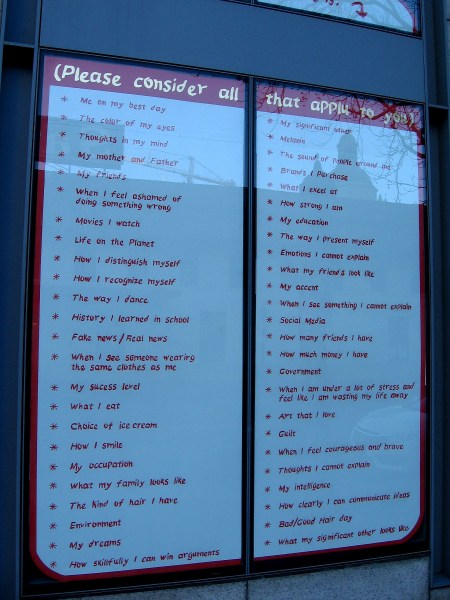 (Please consider all
* Me on my best day
* The color of my eyes
* Thoughts in my mind
* My mother and Father
* My friends
* When I feel ashamed of
doing something wrong
* Movies I watch
* Life on the Planet
* How I distinguish myself
* How I recognize myself
* The way I dance
* History I learned in school
* Fake news/Real news
* When I see someone wearing
the same clothes as me
* My sucess level
* What I eat
* Choice of ice cream
* How I smile
* My occupation
* What my family looks like
* The kind of hair I have
* Environment
* My dreams
* How skillfully I can win arguments
that apply to you)
* My significant other
* Melanin
* The sound of people around me
* Brands I Purchase
* What I excel at
* How strong I am
* My education
* The way I present myself
* Emotions I cannot explain
* What my friends look like
* My accent
* When I see something I cannot explain
* Social Media
* How many friends I have
* How much money I have
* Government
* When I am under a lot of stress and
feel like I am wasting my life away
* Art that I love
* Guilt
* When I feel courageous and brave
* Thoughts I cannot explain
* My intelligence
* How clearly I can communicate ideas
* Bad/Good Hair day
* What my significant other looks like